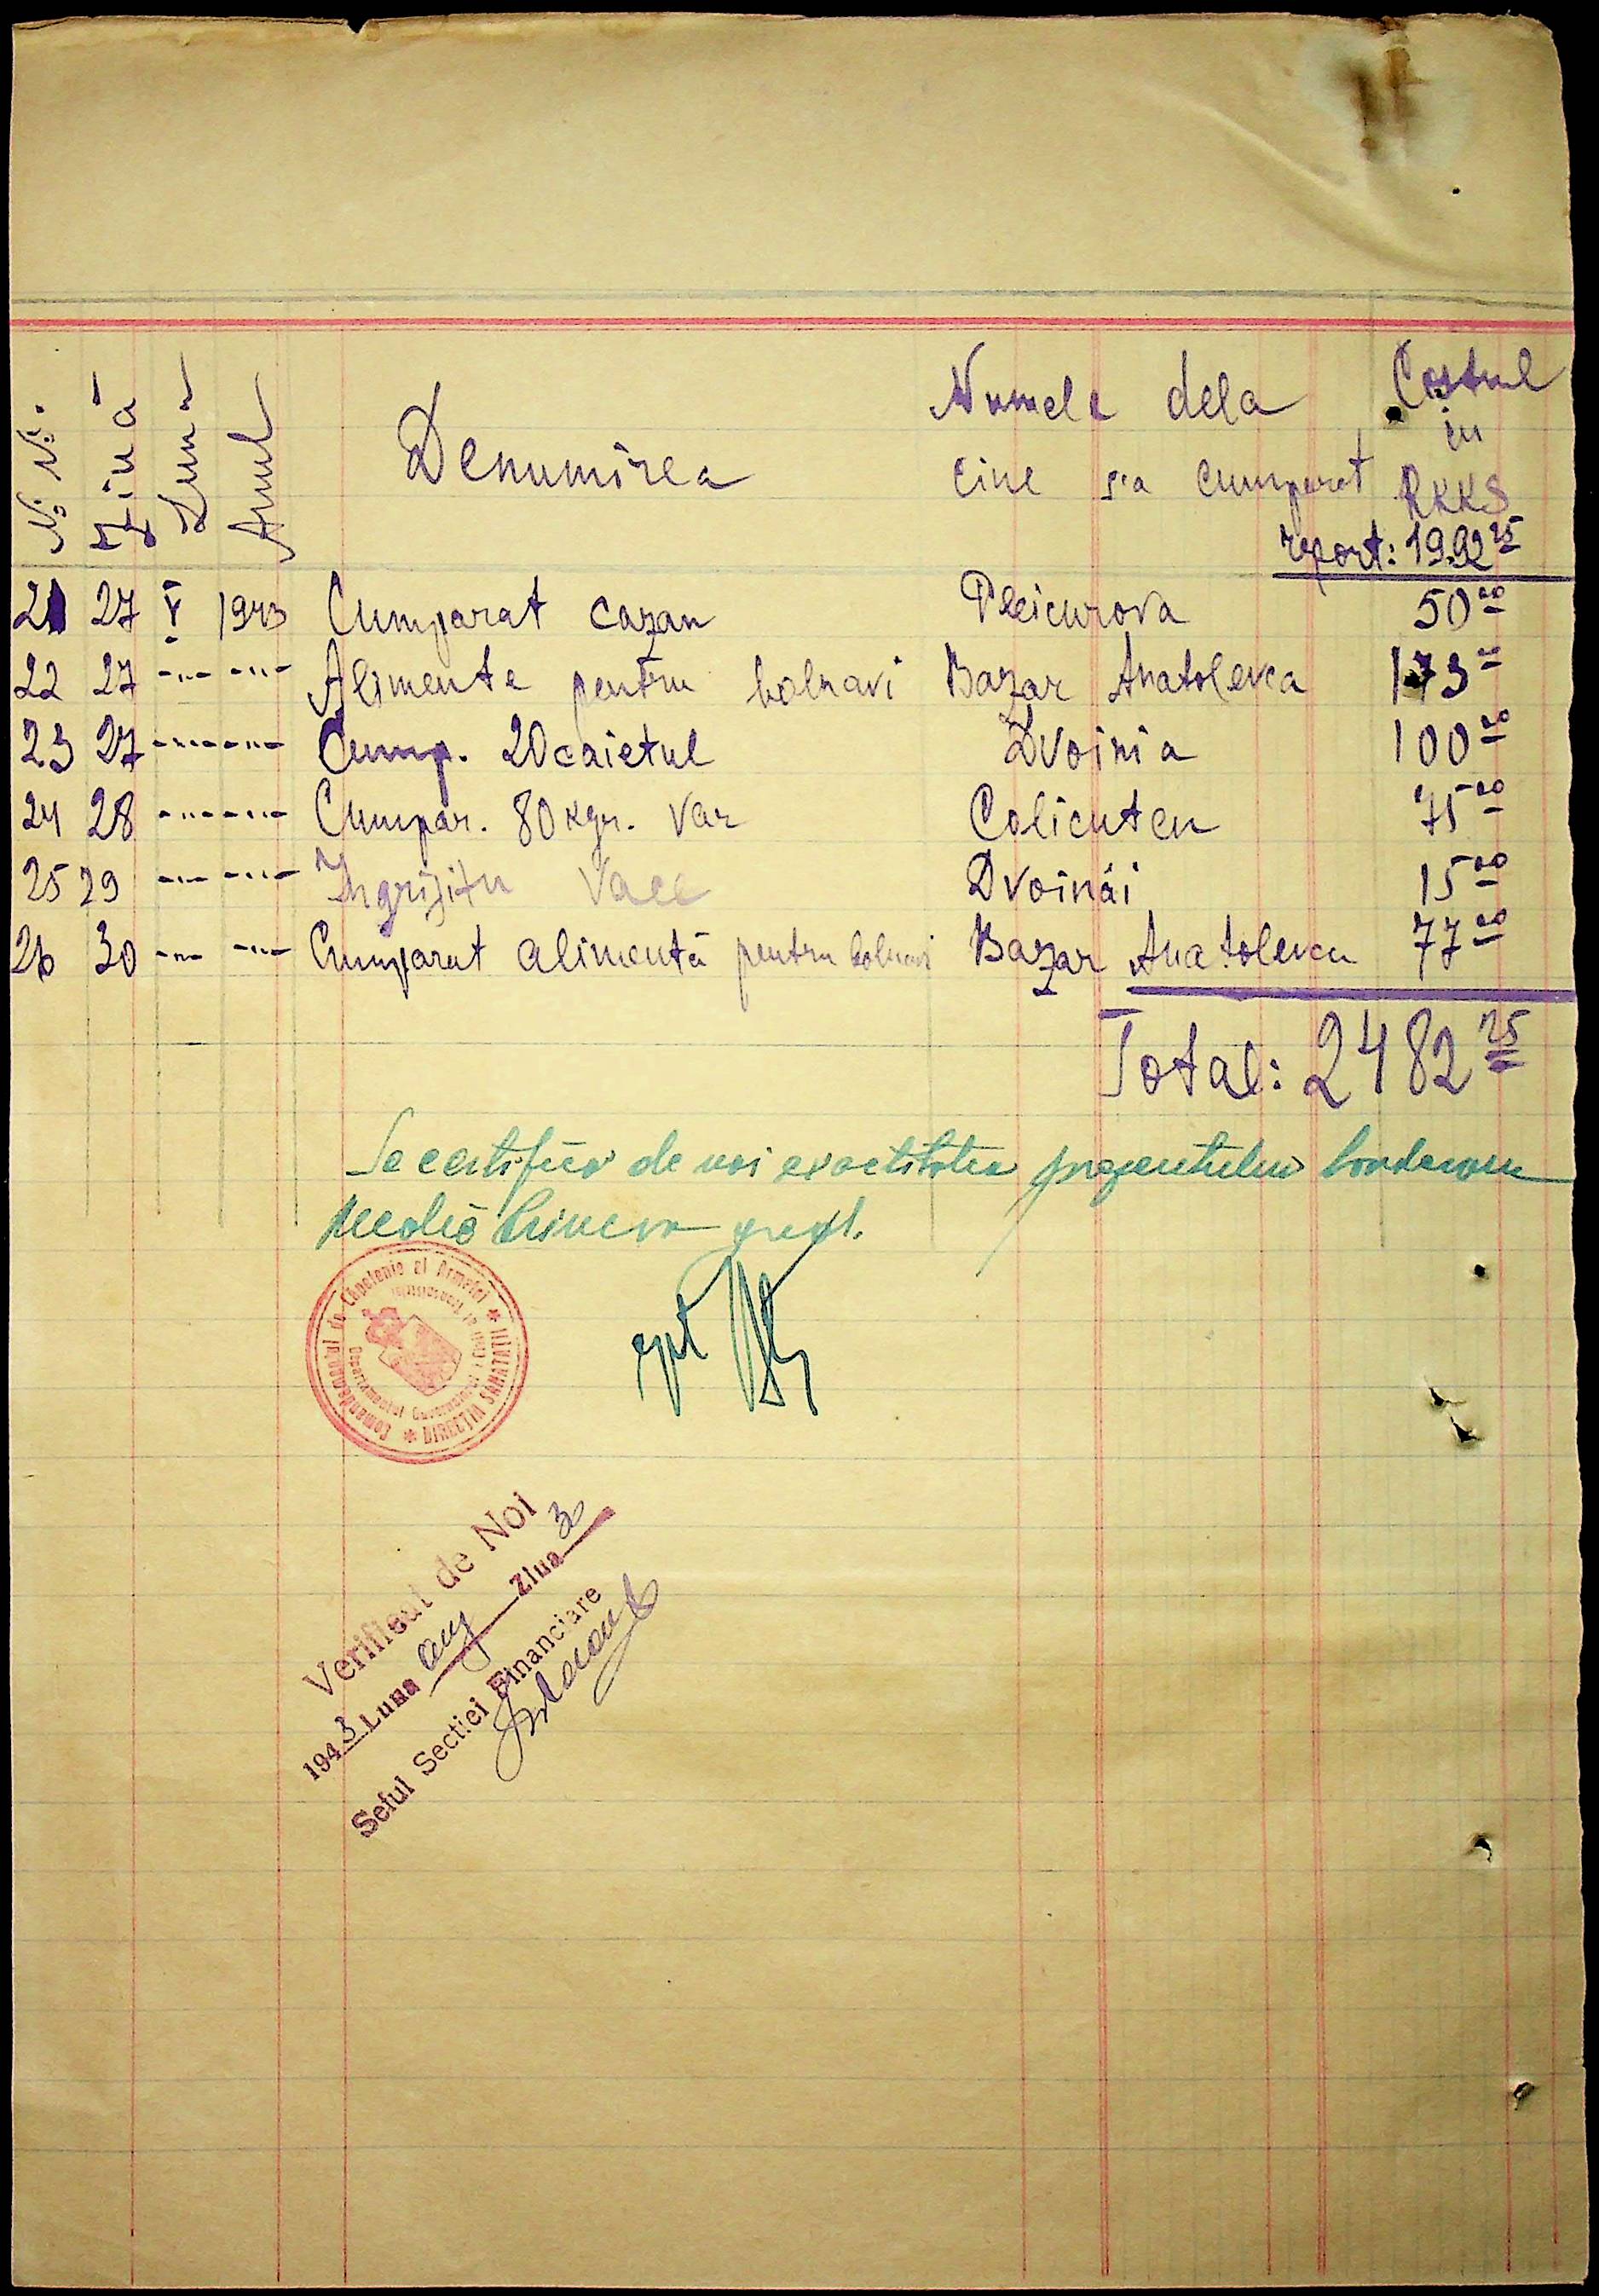 № №. Ziuá Luna Anul Denumirea Numele dela cine s'a cumparat Costul in RKKS
report: 1992 25
21 27 V 1943 Cumparat cazan Pleicurova 50 00
22 27 -"- -"- Alimente pentru bolnavi Bazar Anatolevca 173 00
23 27 -"- -"- Cump. 20 caietul Dvoinia 100 00
24 28 -"- -"- Cumpar. 80 kgr. Var Colicuteu 75 00
25 29 -"- -"- Ingrijitu Vace Dvoinái 15 00
26 30 -"- -"- Cumparat alimentă pentru bolnavi Bazar Anatolevca 77 00
Total: 2482 25
Se certifică de noi exactitatea prezentului borderou
Medic
Comandamentul de Căpetenie al Armatei * DIRECȚIA SĂNĂTĂȚII *
Departamentul Guvernământ Civil al Transnistriei
Verificat de Noi
1943 Luna aug Ziua 30
Seful Sectiei Financiare